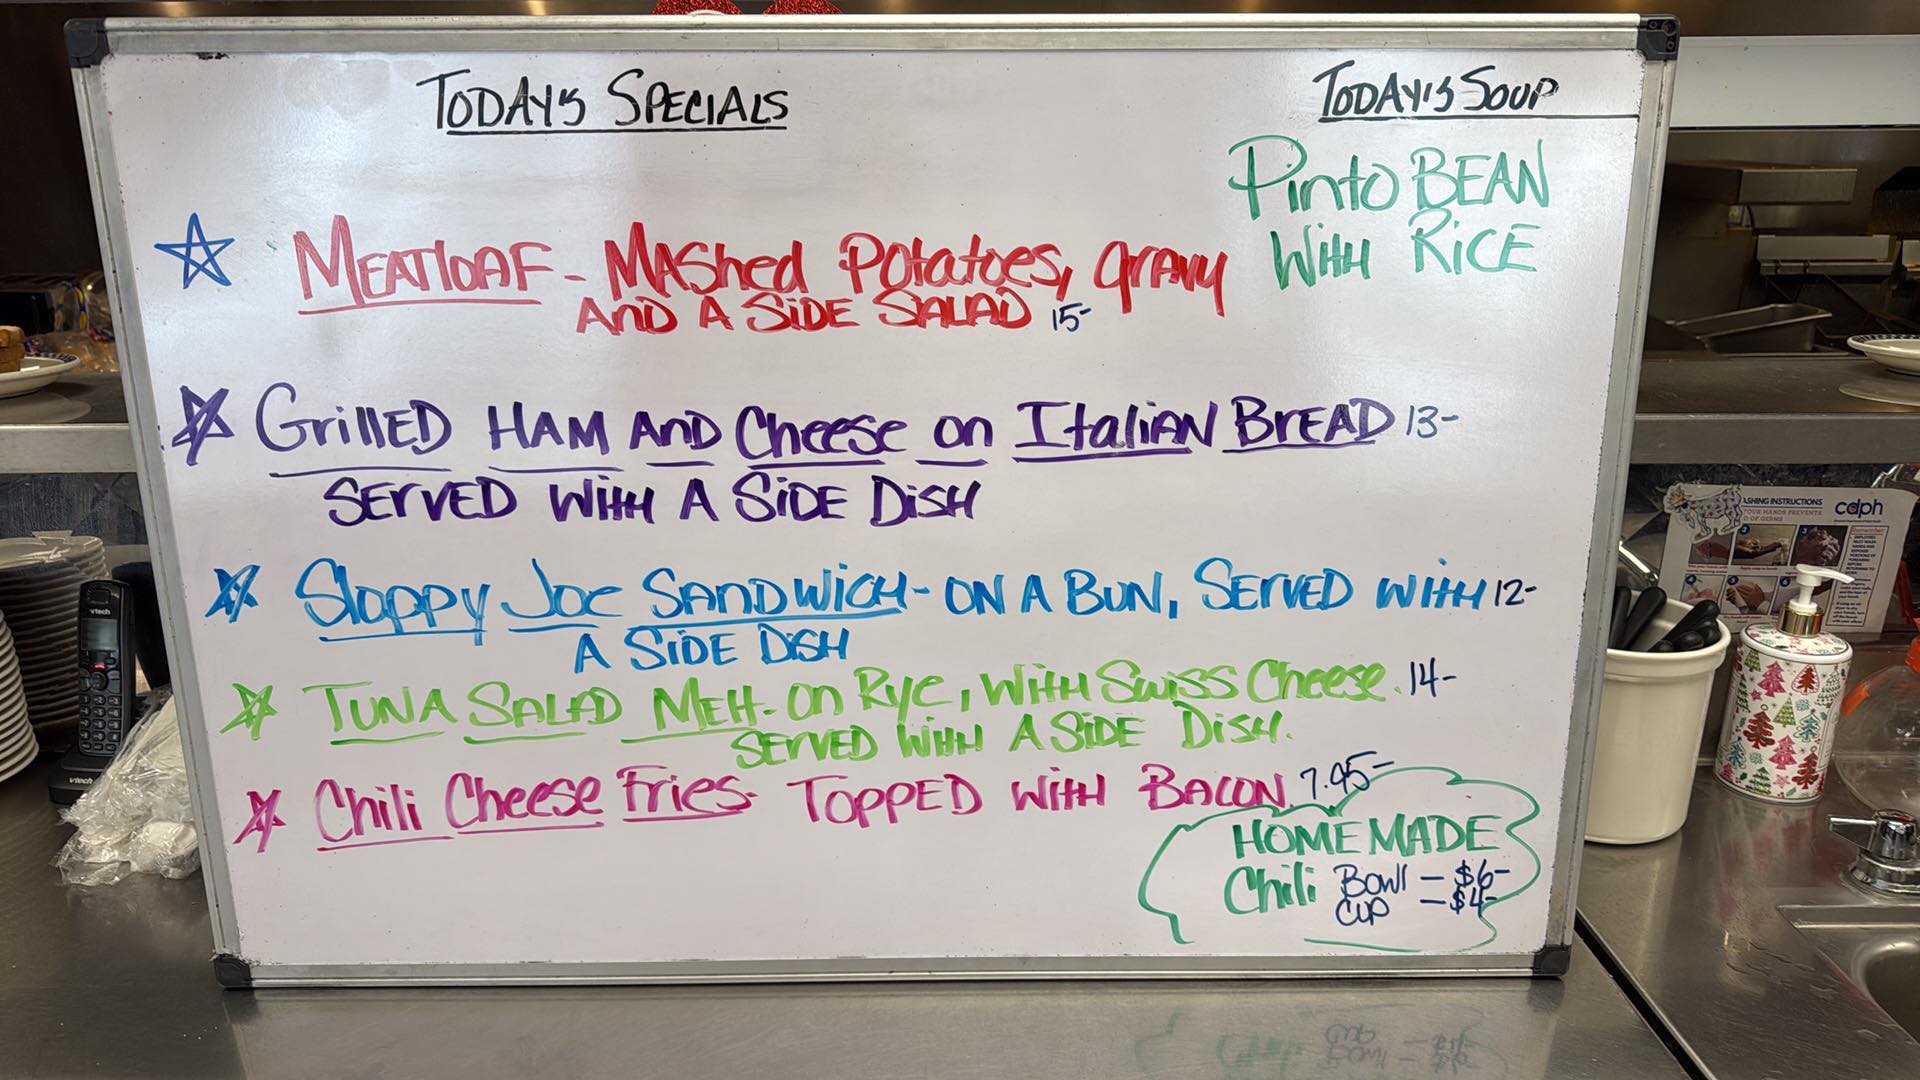 TODAY'S SPECIALS
TODAY'S SOUP
Pinto BEAN
WITH RICE
MEATLOAF - MASHED POTATOES, GRAVY
AND A SIDE SALAD 15-
GRILLED HAM AND CHEESE ON ITALIAN BREAD 13-
SERVED WITH A SIDE DISH
SLOPPY JOE SANDWICH - ON A BUN, SERVED WITH 12-
A SIDE DISH
TUNA SALAD MELT - ON RYE, WITH SWISS CHEESE. 14-
SERVED WITH A SIDE DISH.
CHILI CHEESE FRIES - TOPPED WITH BACON. 7.95-
HOMEMADE
CHILI BOWL - $6-
CUP - $4-
vtech
vtech
SHING INSTRUCTIONS
YOUR HANDS PREVENTS
D OF GERMS
cdph